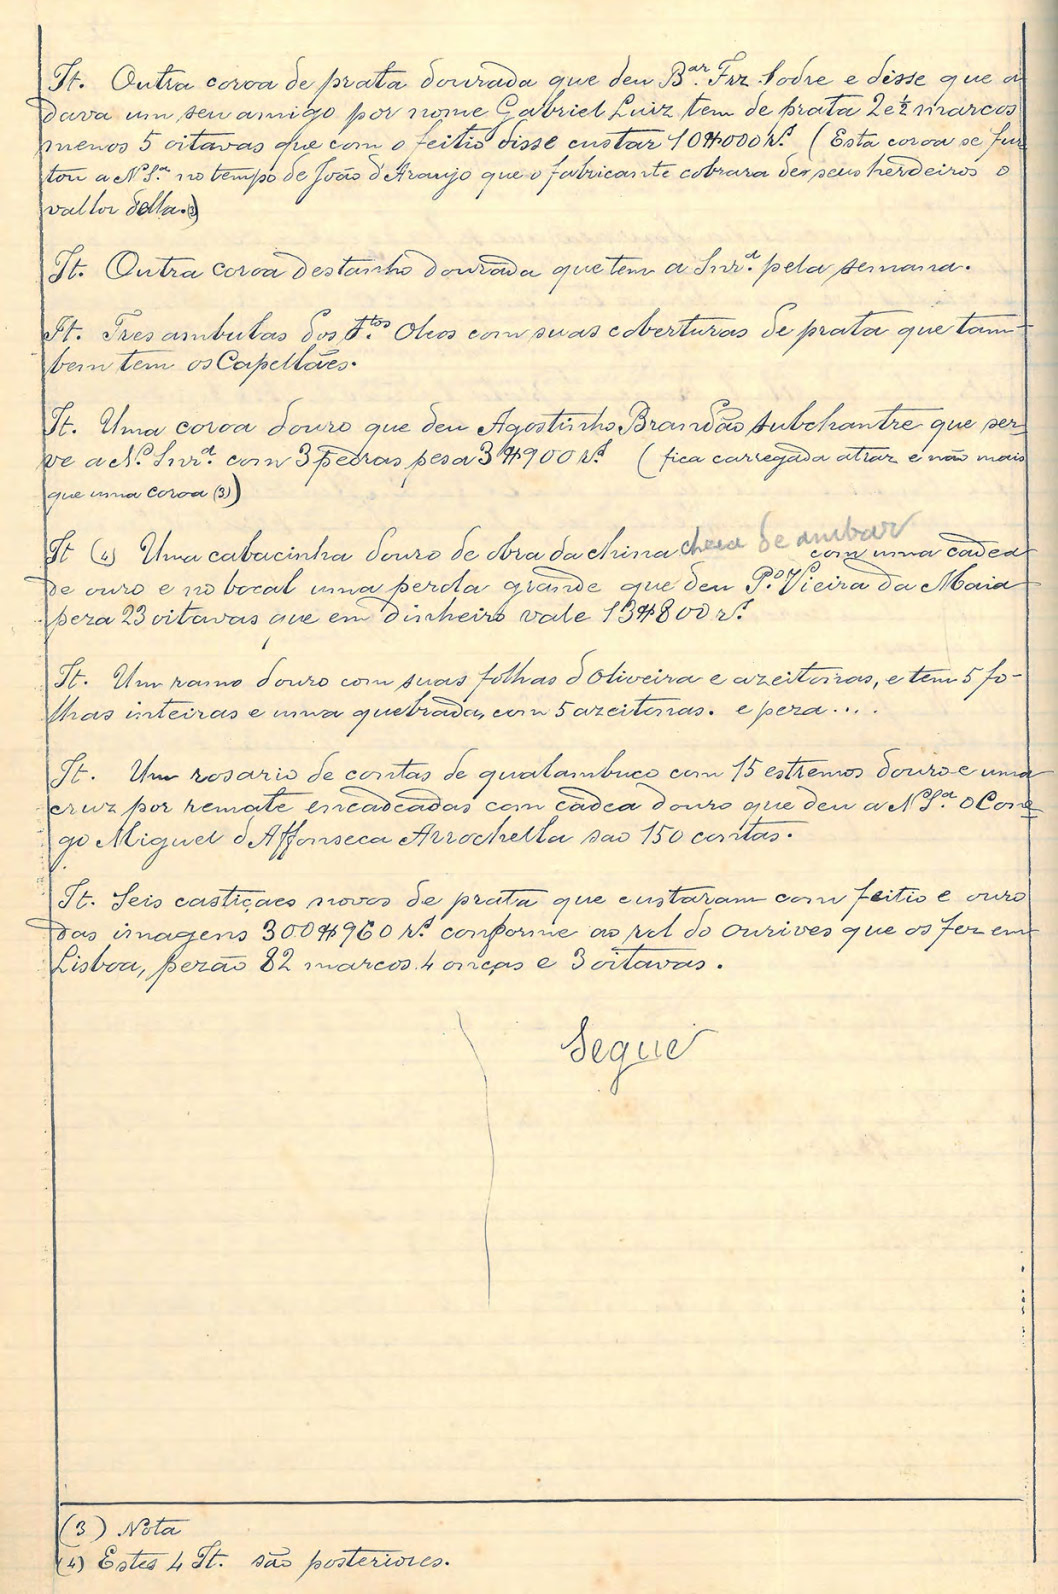 It. Outra coroa de prata dourada que deu B.ar Frz Sodre e disse que a
dava um seu amigo por nome Gabriel Luiz tem de prata 2 e ½ marcos
menos 5 oitavas que com o feitio disse custar 10$000 r.s (Esta coroa se fur
tou a N S.ra no tempo de João d'Araujo que o fabricante cobrara de seus herdeiros o
vallor della.(3)
It. Outra coroa destanho dourada que tem a Snr.a pela semana.
It. Tres ambulas dos S.tos Oleos com suas coberturas de prata que tam-
bem tem os Capellães.
It. Uma coroa douro que deu Agostinho Brandão subchantre que ser-
ve a N.a Snr.a com 3 pedras pesa 3$900 r.s (fica carregada atraz e não mais
que uma coroa (3))
It (4) Uma cabacinha douro de obra da china cheia de ambar com uma cadea
de ouro e no bocal uma perola grande que deu P.o Vieira da Maia
peza 23 oitavas que em dinheiro vale 13$800 r.s
It. Um ramo douro com suas folhas d Oliveira e azeitonas, e tem 5 fo-
lhas inteiras e uma quebrada, com 5 azeitonas. e peza....
It. Um rosario de contas de qualambuco com 15 estremos douro e uma
cruz por remate encadeadas com cadea douro que deu a N S.ra o Cone
go Miguel d'Affonseca Arrochella sao 150 contas.
It. Seis castiçaes novos de prata que custaram com feitio e ouro
das imagens 300$960 r.s conforme ao rol do ourives que os fez em
Lisboa, pezão 82 marcos 4 onças e 3 oitavas.
Segue
(3) Nota
(4) Estes 4 It. são posteriores.